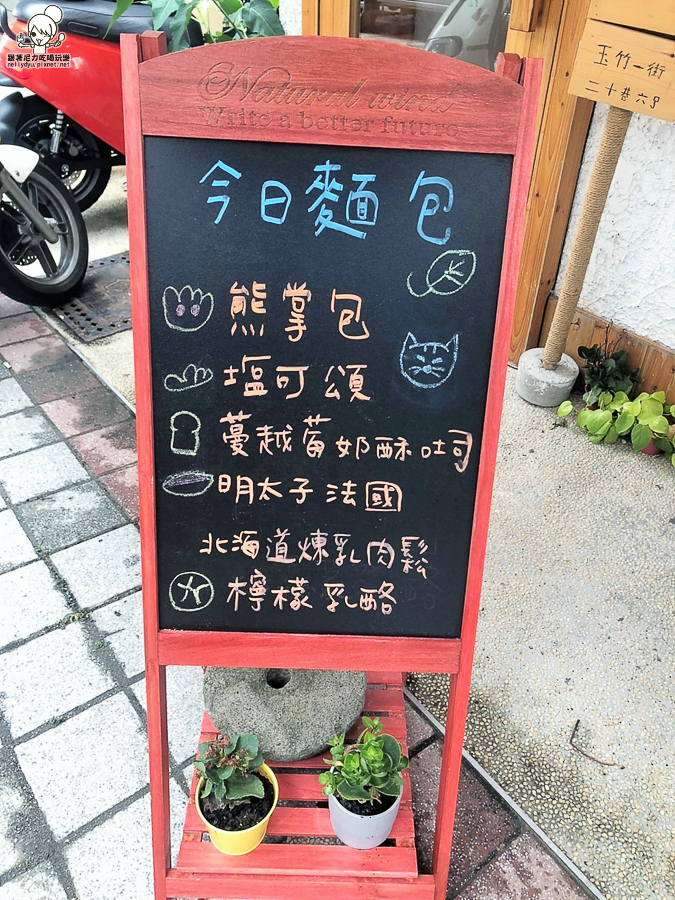 跟著尼力吃喝玩樂
nellydyu.pixnet.net
Natural wind
Write a better future
玉竹一街
二十巷六号
今日麵包
熊掌包
塩可頌
蔓越莓奶酥吐司
明太子法國
北海道煉乳肉鬆
檸檬乳酪